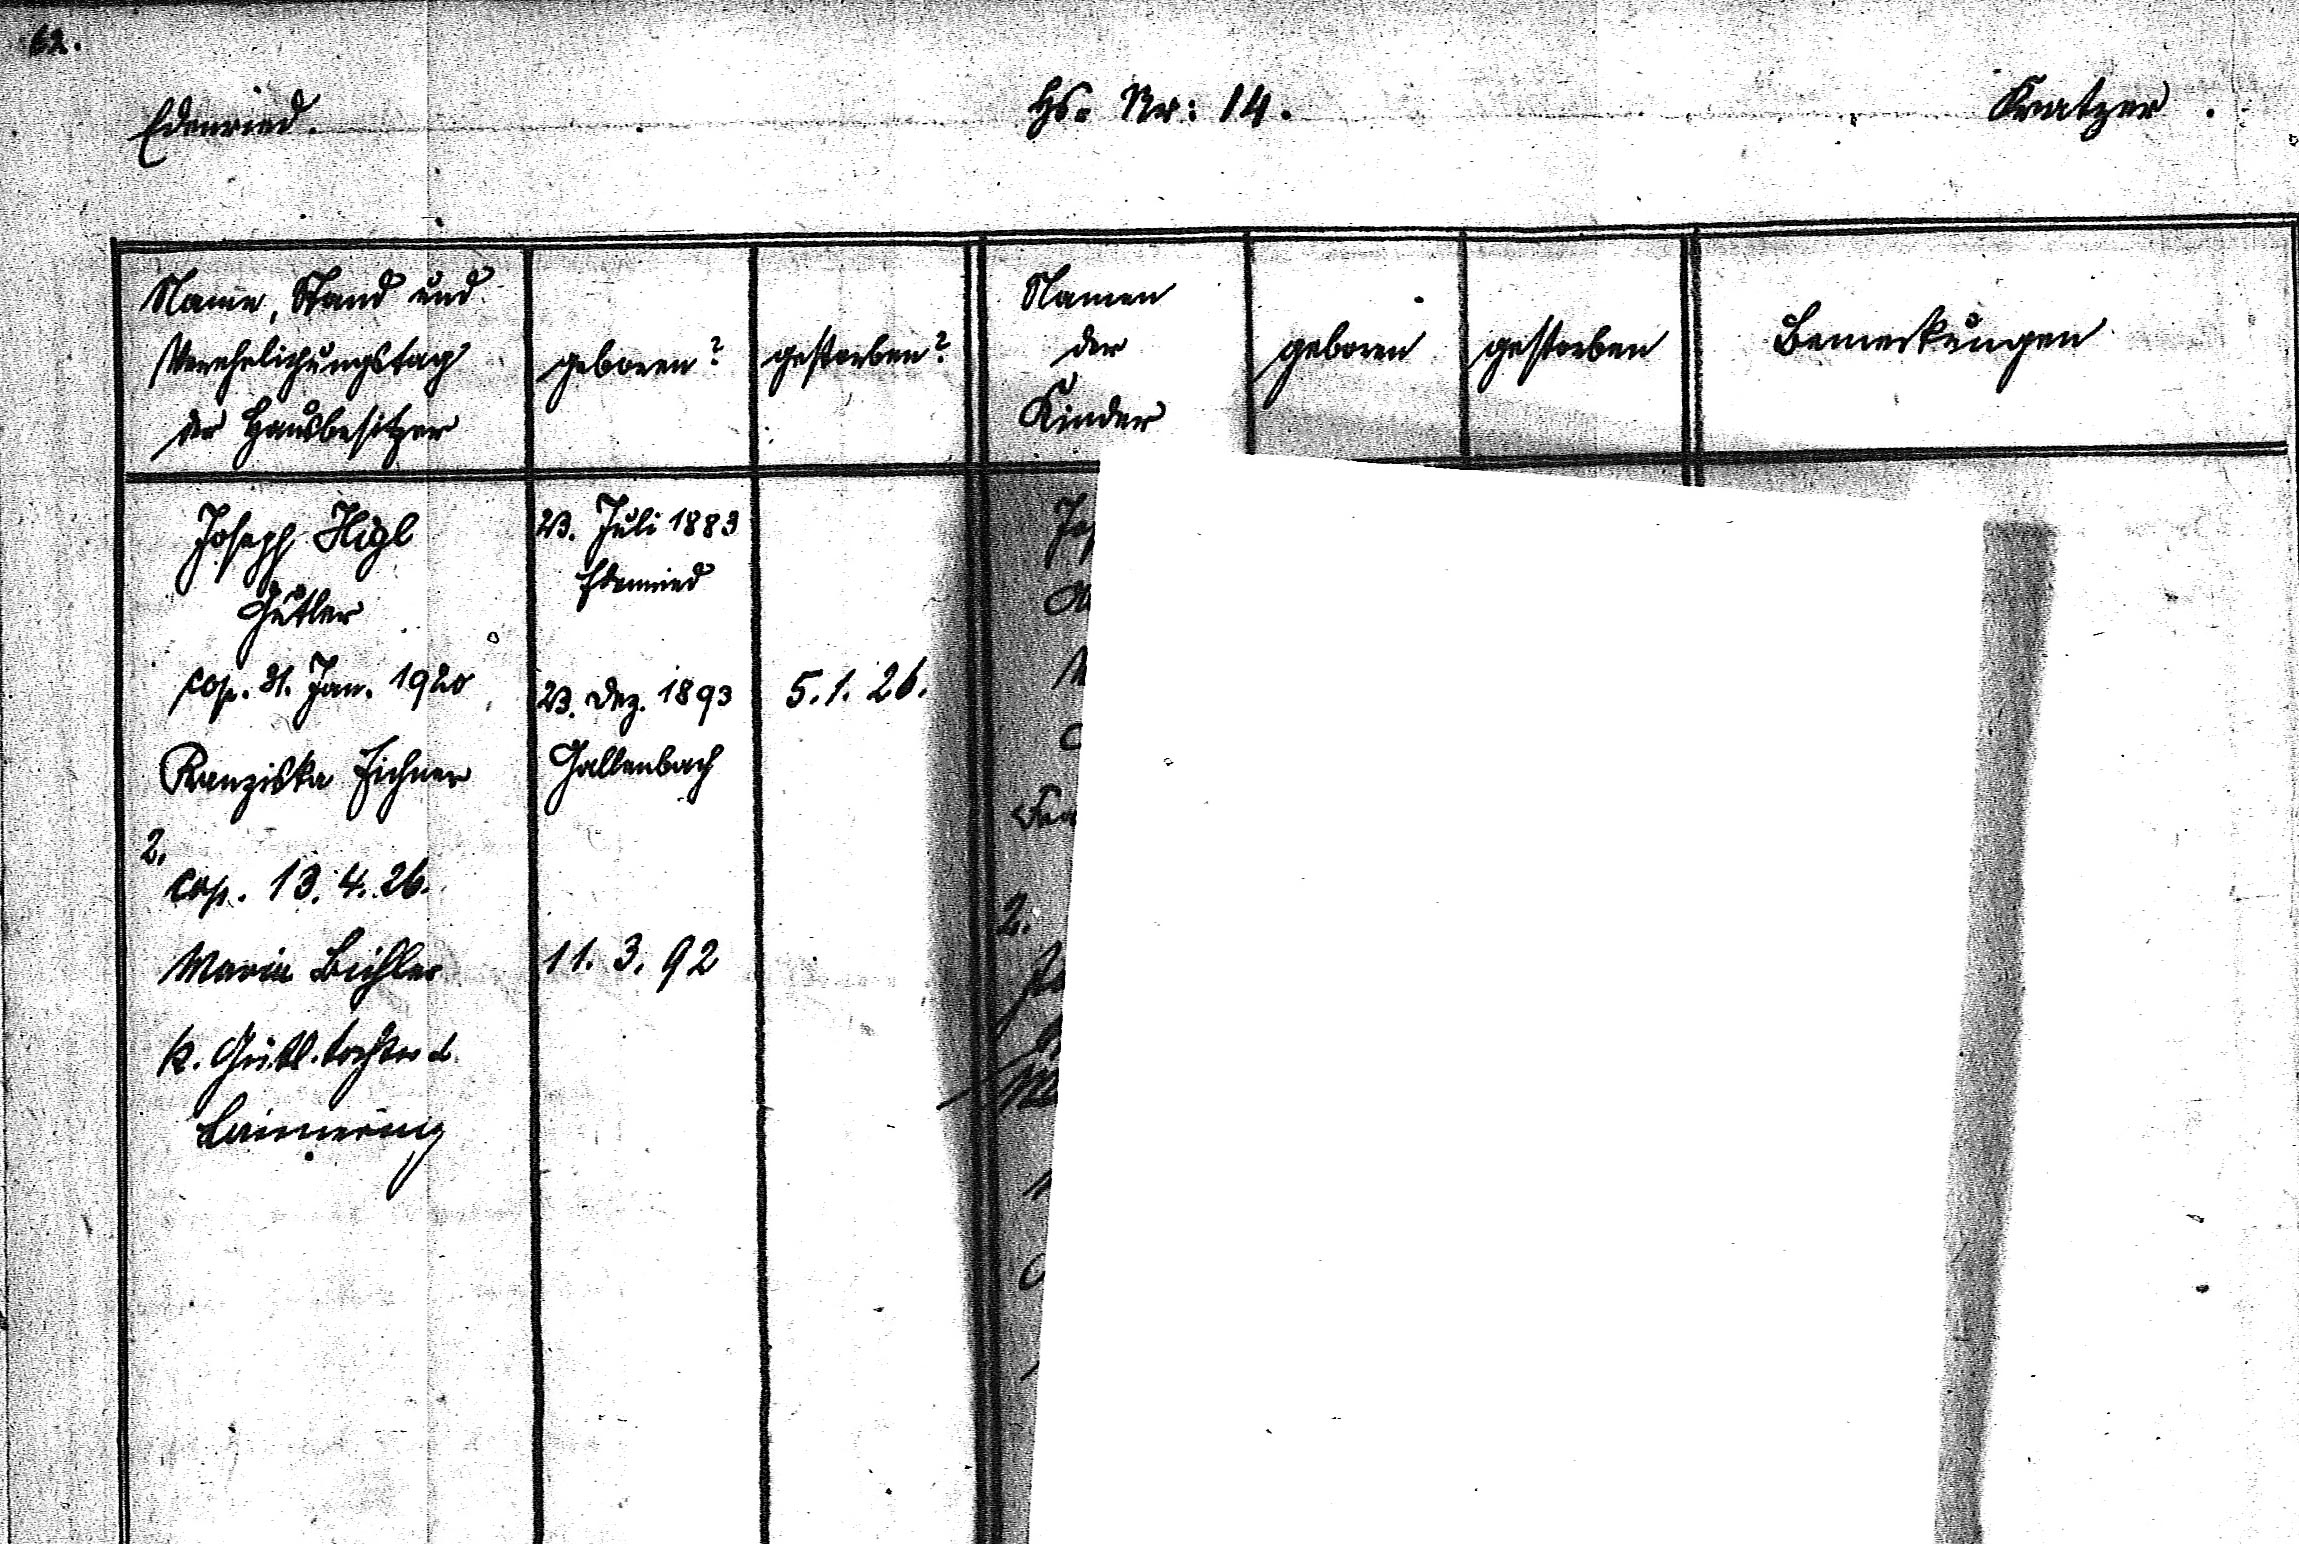 62.
Edenried. Hs. Nr: 14. Kratzer.
Name, Stand und
Verehelichungstag
der Hausbesitzer
geboren?
gestorben?
Namen
der
Kinder
geboren
gestorben
Bemerkungen
Joseph Higl
Gütler
cop. 31. Jan. 1920
Franziska Eichner
2.
cop. 13. 4. 26.
Maria Bichler
k. Gütl. tochter
23. Juli 1883
Edenried
23. Dez. 1893
Gallenbach
11. 3. 92
5. 1. 26.
2.